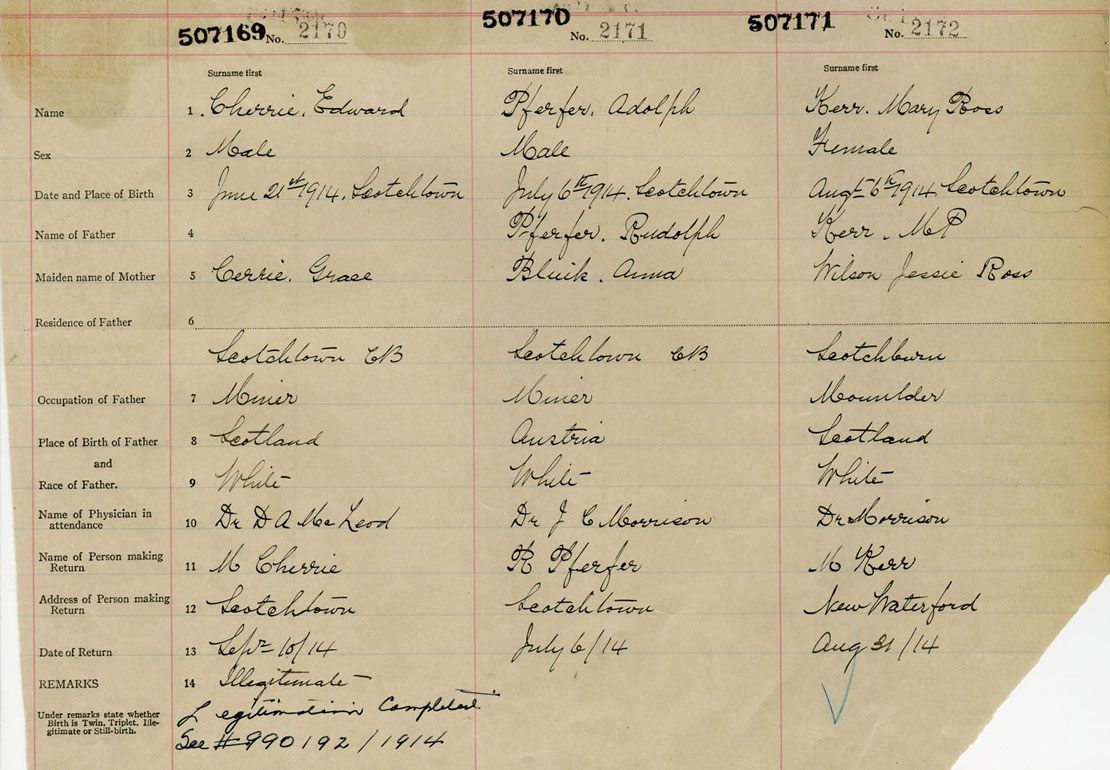 507169 No. 2170 507170 No. 2171 507171 No. 2172
Surname first Surname first Surname first
Name 1. Cherrie, Edward Pferfer, Adolph Kerr. Mary Ross
Sex 2 Male Male Female
Date and Place of Birth 3 June 21st 1914. Scotchtown July 6th 1914. Scotchtown Augt 6th 1914 Scotchtown
Name of Father 4 Pferfer. Rudolph Kerr. M P
Maiden name of Mother 5 Cerrie. Grace Bluik. Anna Wilson Jessie Ross
Residence of Father 6
Scotchtown CB Scotchtown CB Scotchburn
Occupation of Father 7 Miner Miner Mounlder
Place of Birth of Father 8 Scotland Austria Scotland
and
Race of Father. 9 White White White
Name of Physician in
attendance 10 Dr D A Mac Leod Dr J C Morrison Dr Morrison
Name of Person making
Return 11 M Cherrie R Pferfer M Kerr
Address of Person making
Return 12 Scotchtown Scotchtown New Waterford
Date of Return 13 Sept 10/14 July 6/14 Aug 31/14
REMARKS 14 Illegitimate
Under remarks state whether
Birth is Twin, Triplet, Ille-
gitimate or Still-birth.
Legitimation Completed.
See # 990192/1914